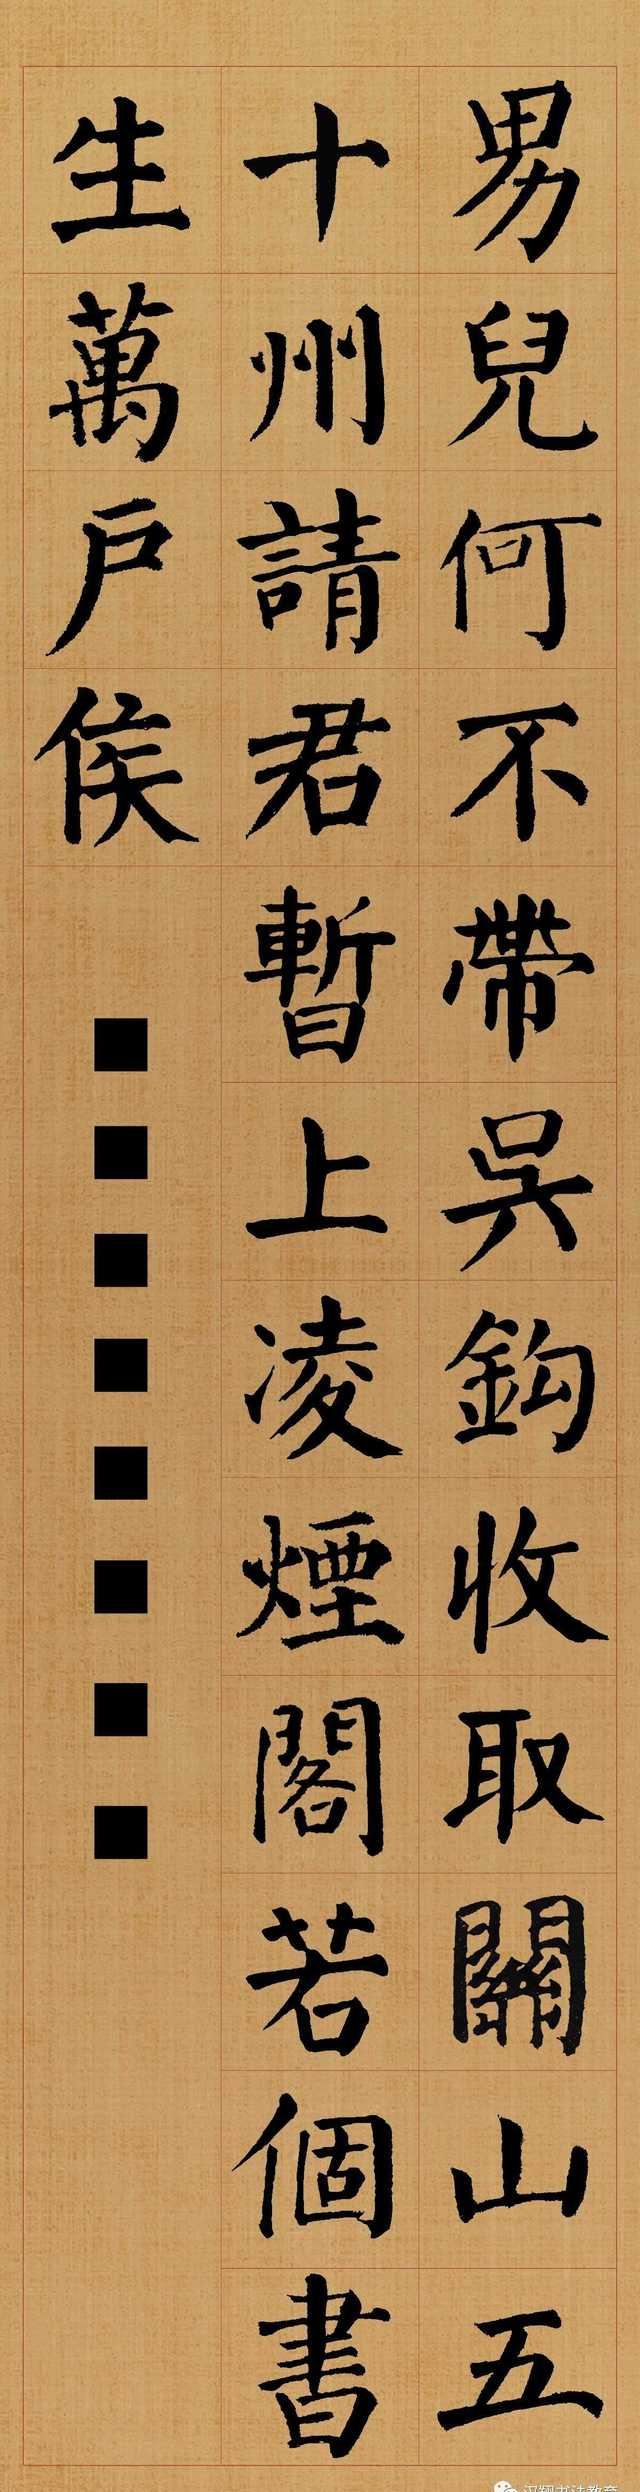 男兒何不帶吳鈎收取關山五
十州請君暫上凌煙閣若個書
生萬戶侯
■■■■■■■■
汉翔书法教育